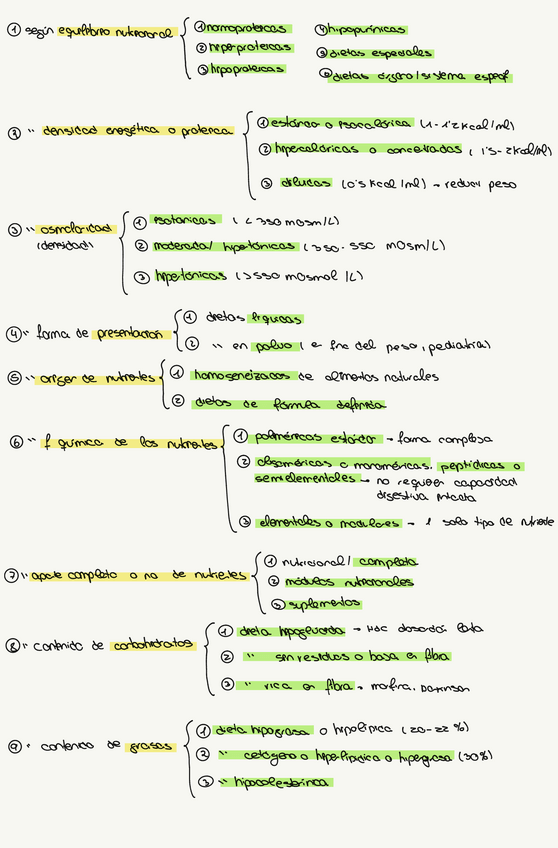 ① según equilibrio nutricional
① normoproteicas
② hiperproteicas
③ hipoproteicas
④ hipopurínicas
⑤ dietas especiales
⑥ dietas órgano/sistema específ
② " densidad energética o proteica
① estándar o isocalórica (1-1'2 kcal/ml)
② hipercalóricas o concentradas (1'5-2kcal/ml)
③ diluidas (0'5 kcal/ml) → reducir peso
③ " osmolaridad
(densidad)
① isotónicas (<350 mOsm/L)
② moderada/ hipertónicas (350-550 mOsm/L)
③ hipertónicas (>550 mOsmol/L)
④ " forma de presentación
① dietas líquidas
② " en polvo (en fnc del peso, pediatría)
⑤ " origen de nutrientes
① homogeneizados de alimentos naturales
② dietas de fórmula definida
⑥ " f química de los nutrientes
① poliméricas estándar → forma compleja
② oligoméricas o monoméricas. peptídicas o
semielementales → no requieren capacidad
digestiva intacta
③ elementales o modulares → 1 solo tipo de nutriente
⑦ " aporte completo o no de nutrientes
① nutricional/ completa
② módulos nutricionales
③ suplementos
⑧ " contenido de carbohidratos
① dieta hipoglucida → HdC absorción lenta
② " sin residuos o baja en fibra
③ " rica en fibra → morfina, parkinson
⑨ " contenido de grasas
① dieta hipograsa o hipolipídica (20-22 %)
② " cetógena o hiperlipídica o hipergrasa (30%)
③ " hipocolesterínica